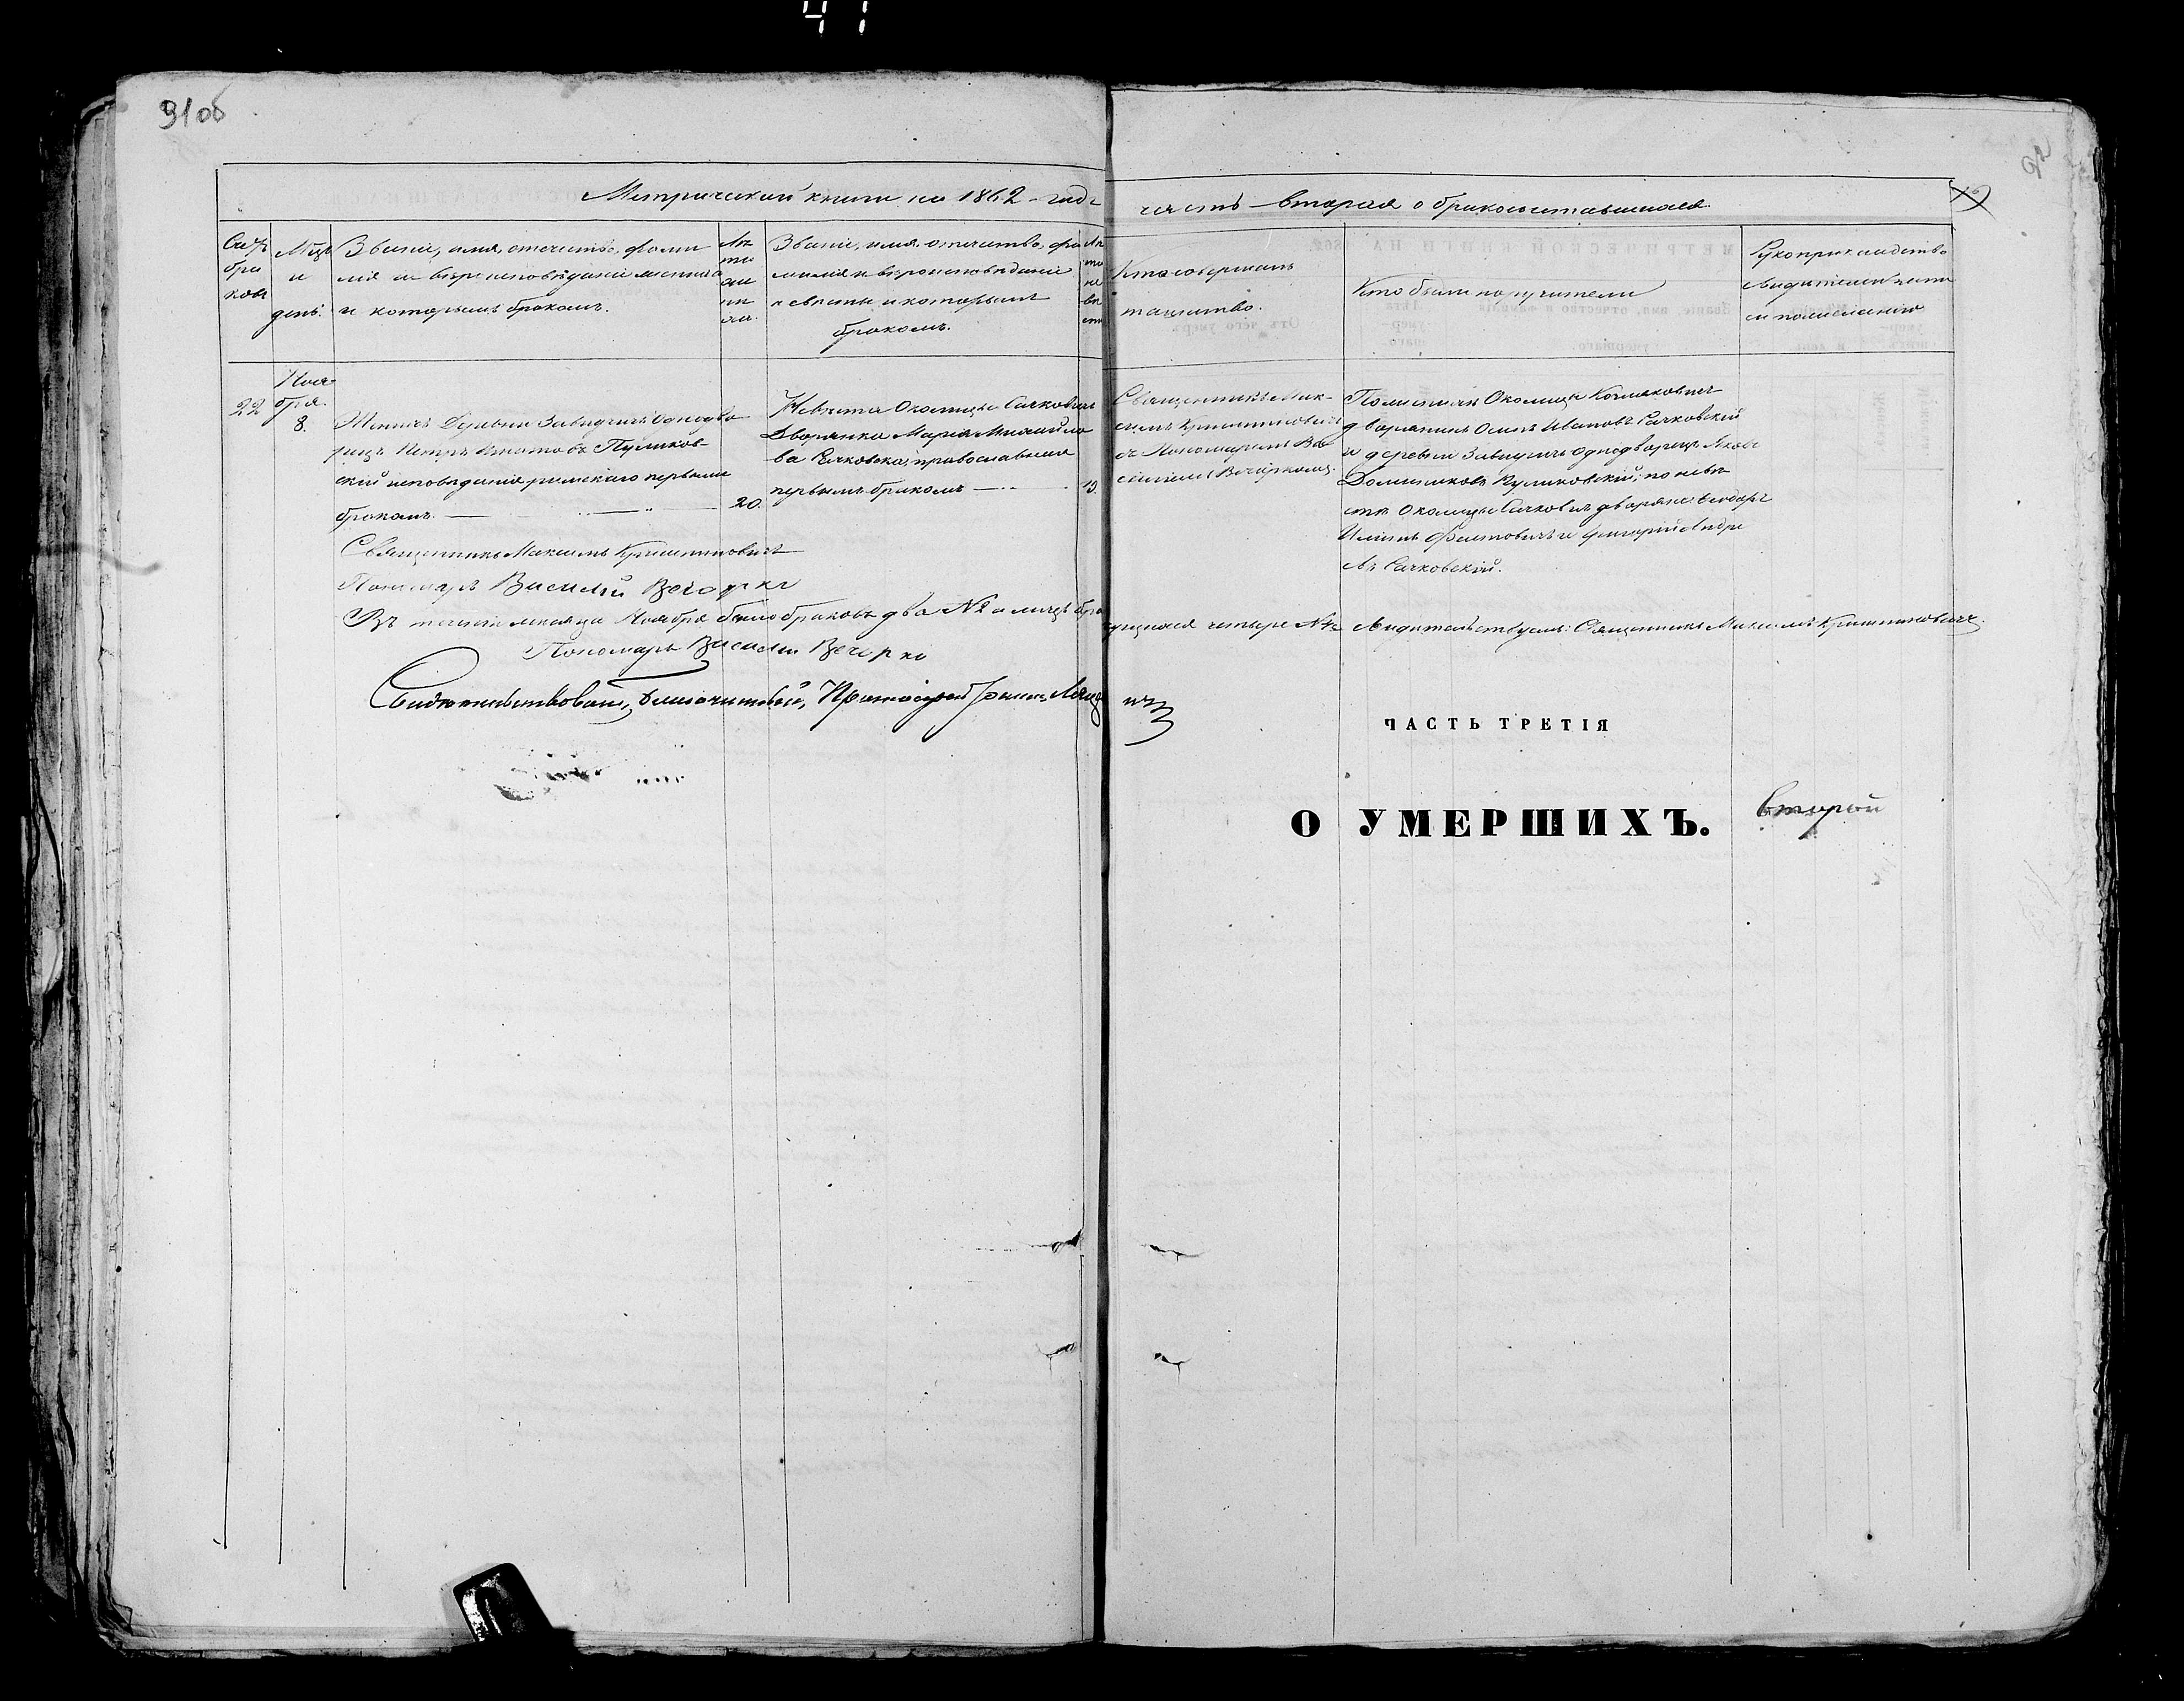 41
91об
92
Метрической книги на 1862 годъ
часть вторая о бракосочетавшихся.
Счетъ браковъ
Мѣсяцъ и день.
Званіе, имя, отчество, фами
лія и вѣроисповѣданіе жениха
и которымъ бракомъ.
Лѣта жениха.
Званіе, имя, отчество, фа
милія и вѣроисповѣданіе
невѣсты и которымъ
бракомъ.
Лѣта невѣсты
Кто совершалъ
таинство.
Кто были поручители
Рукоприкладство
свидѣтелей записи
по желанію
22
Ноя-
бря.
8.
Женихъ Деревни Завидчичъ Однодво
рецъ Петръ Игнатовъ Куликов-
скій исповѣданія римскаго первымъ
бракомъ.
20.
Невѣста Околицы Сачковичъ
Дворянка Марія Михайло
ва Сачковска, православная
первымъ бракомъ
19.
Священникъ Мак-
симъ Криштиновичъ
съ Пономаремъ Ва
силіемъ Вечоркомъ.
По женихѣ Околицы
дворянинъ Осипъ Ивановъ Сачковскій
и деревни Завидчичъ однодворецъ Яковъ
Доминиковъ Куликовскій; по невѣ
стѣ Околицы Сачковичъ дворяне Ѳеодоръ
и Григорій Андре
въ Сачковскій.
Священникъ Максимъ Криштиновичъ
Пономарь Василій Вечорко
Въ теченіи месяца Ноября было браковъ два №2 а лицъ бра
чущихся четыре №4 Свидѣтельствуемъ: Священникъ Максимъ Криштиновичъ
Пономарь Василій Вечорко
Свидѣтельствовалъ, Благочинный, Протоіерей
ЧАСТЬ ТРЕТІЯ
О УМЕРШИХЪ.
второй